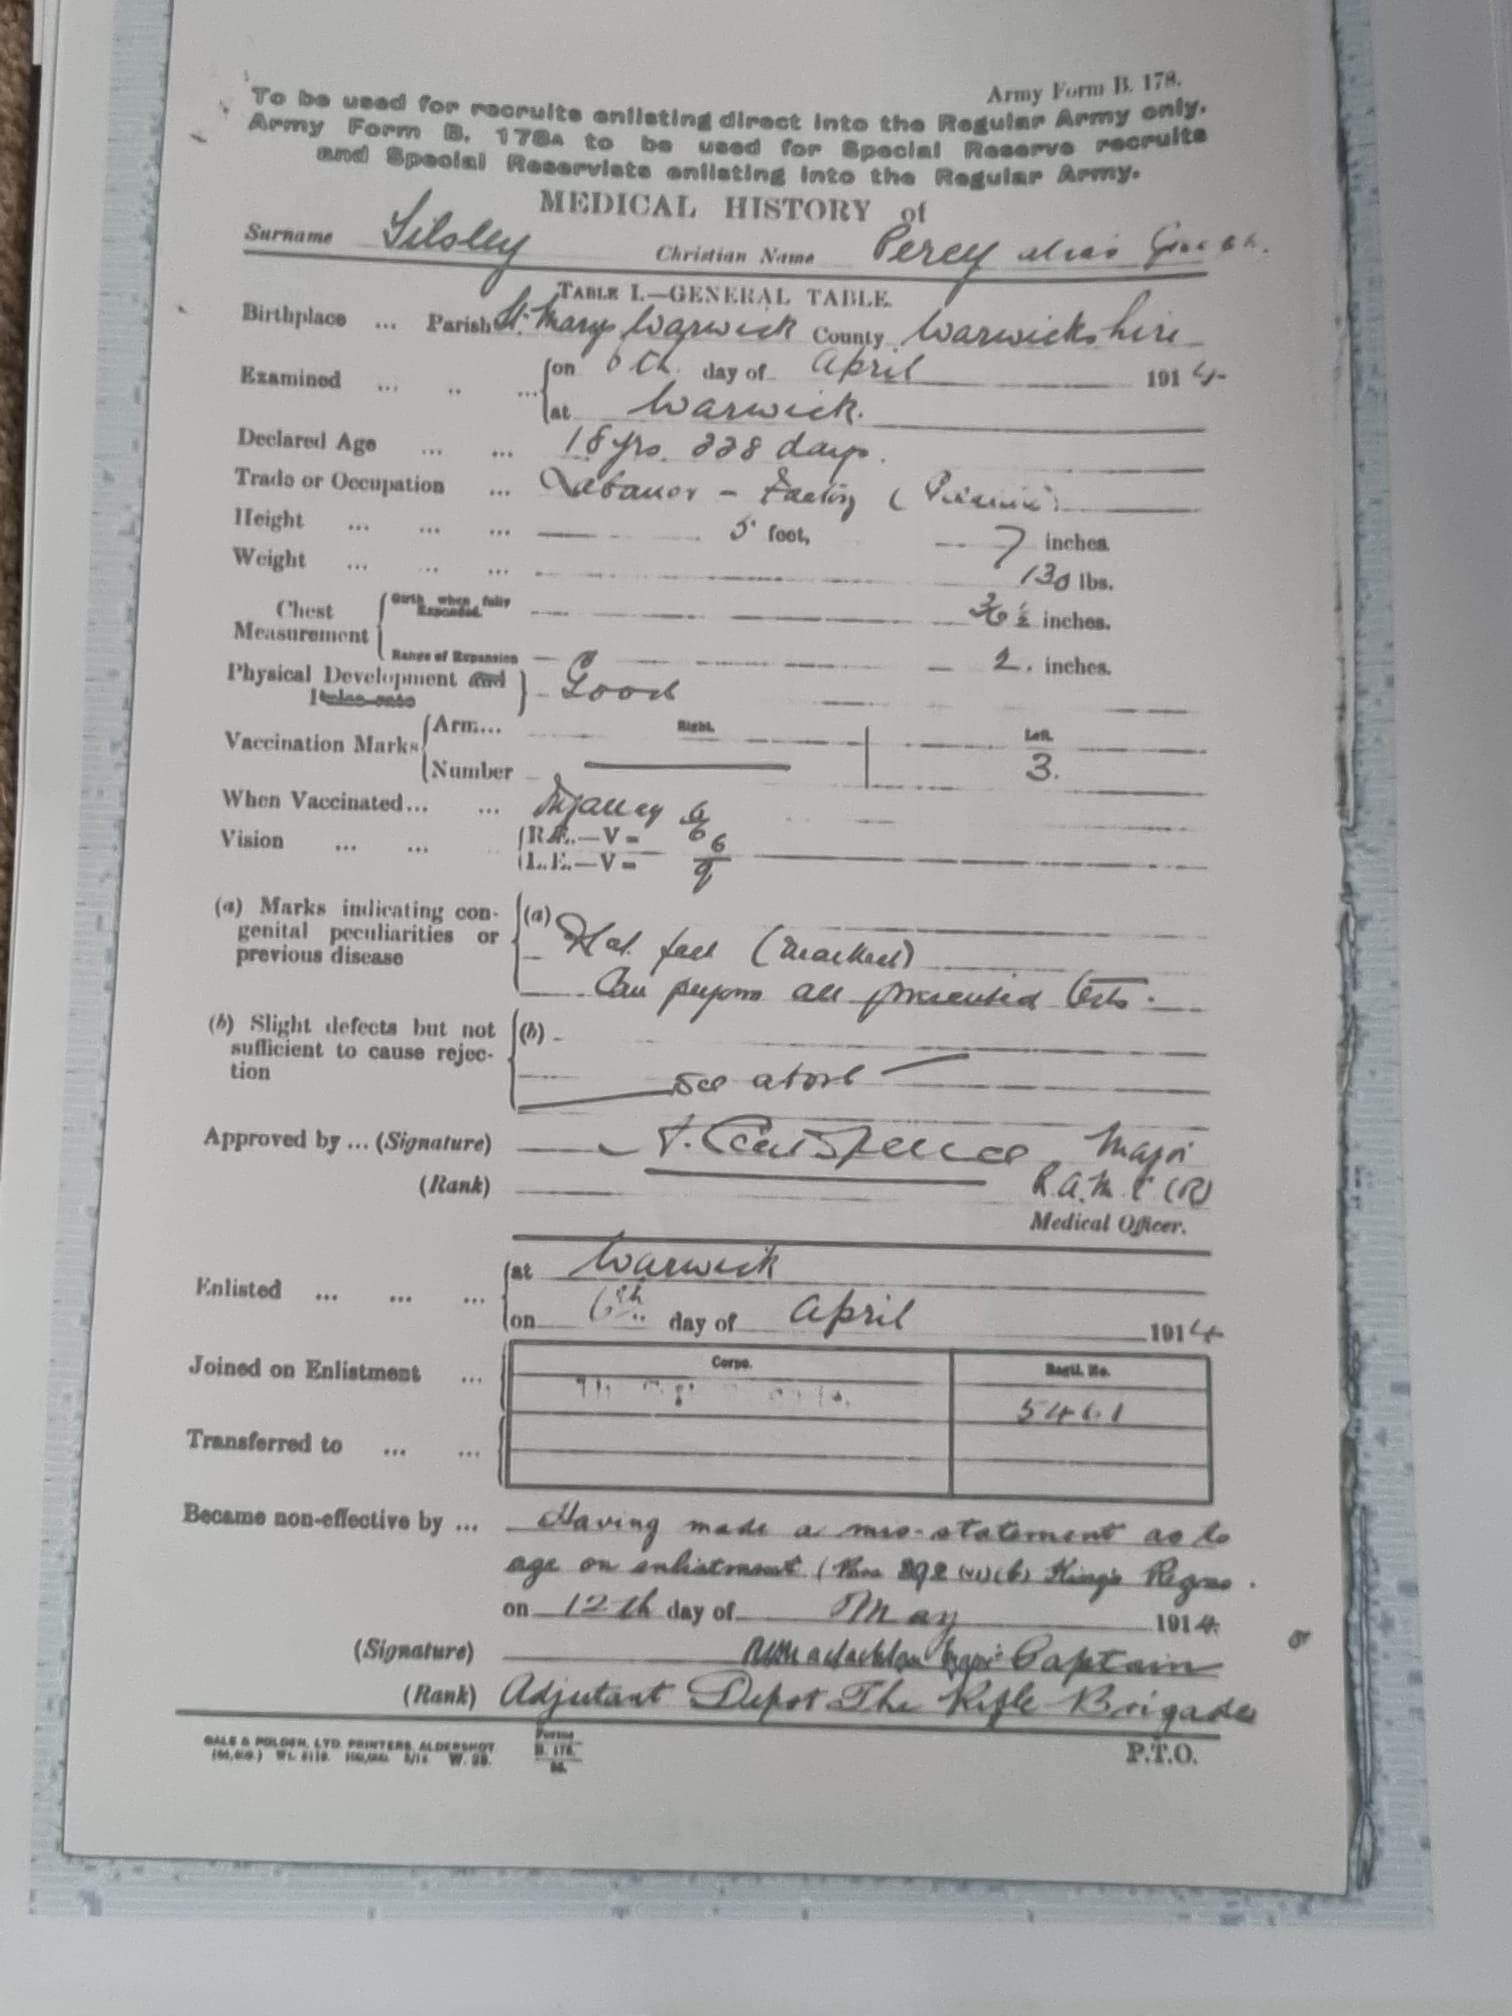 Army Form B. 178.
To be used for recruits enlisting direct into the Regular Army only.
Army Form B. 178A to be used for Special Reserve recruits
and Special Reservists enlisting into the Regular Army.
MEDICAL HISTORY of
Surname Silsley Christian Name Percy alias
TABLE I.—GENERAL TABLE.
Birthplace ... Parish St. Marys Warwick County Warwickshire
Examined ... .. ... on 6th day of April 1914
at Warwick.
Declared Age ... ... 18 yrs. 228 days.
Trade or Occupation ... Labourer - Factory
Height ... ... ... 5 foot, 7 inches
Weight ... ... ... 130 lbs.
Chest Measurement Girth when fully Expanded 36½ inches.
Range of Expansion 2. inches.
Physical Development and Good
Vaccination Marks Arm... Right. Left.
Number 3.
When Vaccinated... ... Infancy
Vision ... ... R.E.—V= 6/6
L.E.—V= 6/9
(a) Marks indicating congenital peculiarities or previous disease (a) Flat feet (marked)
Can perform all tests.
(b) Slight defects but not sufficient to cause rejection (b) -
see above
Approved by ... (Signature) Major
(Rank) R.A.M.C (R)
Medical Officer.
Enlisted ... ... ... at Warwick
on 6th day of April 1914
Corps. Regtl. No.
Joined on Enlistment ... 5461
Transferred to ... ...
Became non-effective by ... Having made a mis-statement as to
age on enlistment (Para 392 King's Regns.
on 12th day of May 1914
(Signature) Captain
(Rank) Adjutant Depot The Rifle Brigade
GALE & POLDEN, LTD. PRINTERS, ALDERSHOT.
Forms
B. 178.
P.T.O.